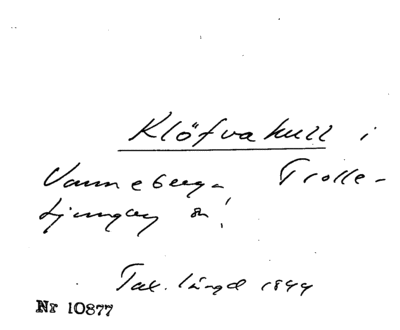 Klöfvahull i
Vanneberga Trolle-
Ljungby sn!
Tax. längd 1844
Nr 10877